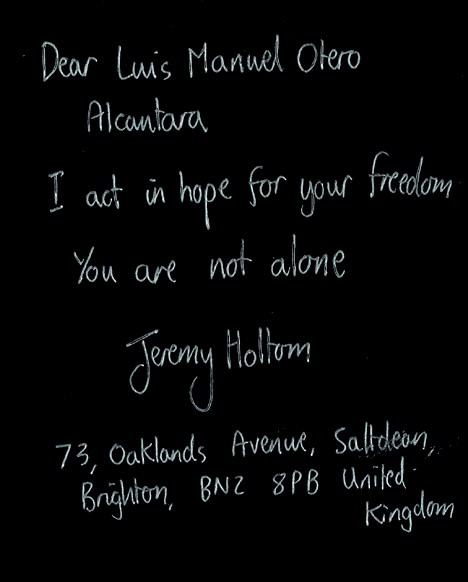 Dear Luis Manuel Otero
Alcantara
I act in hope for your freedom
You are not alone
Jeremy Holtom
73, Oaklands Avenue, Saltdean,
Brighton, BN2 8PB United
Kingdom